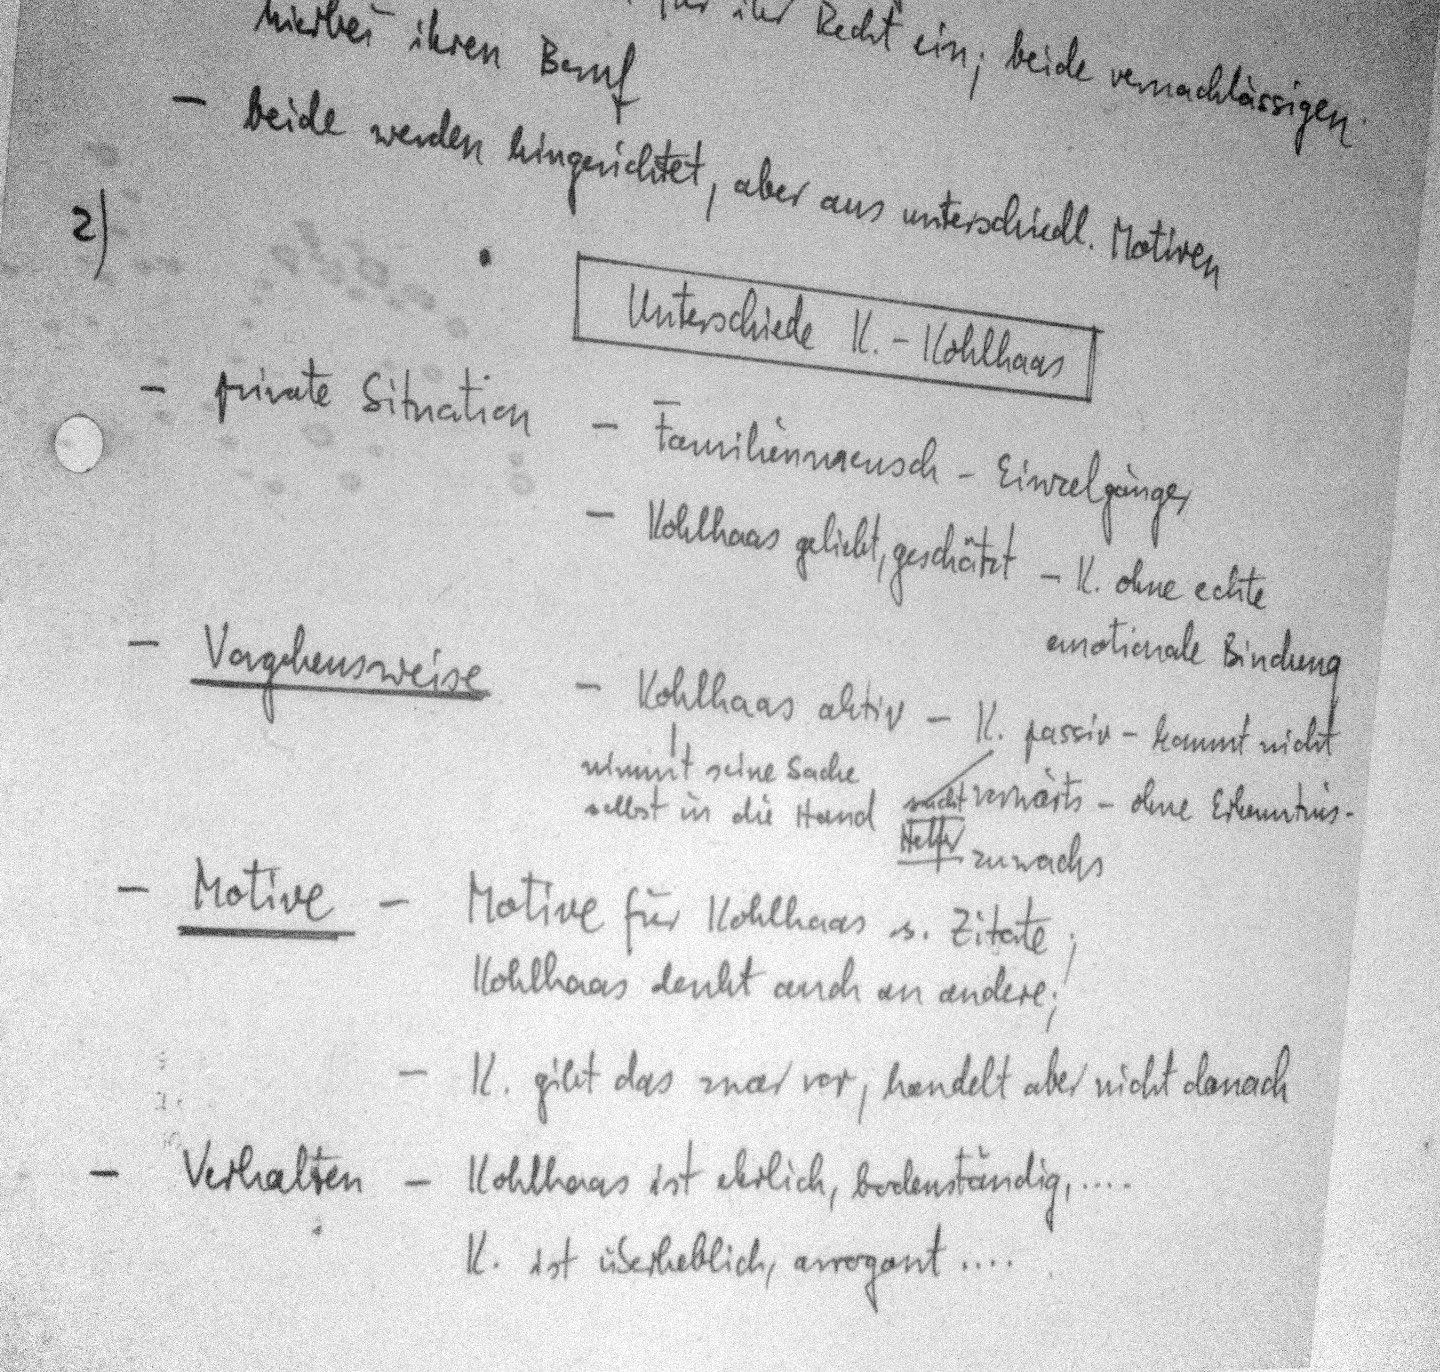 für ihr Recht ein; beide vernachlässigen
hierbei ihren Beruf
- beide werden hingerichtet, aber aus unterschiedl. Motiven
2)
Unterschiede K. - Kohlhaas
- private Situation - Familienmensch - Einzelgänger
- Kohlhaas geliebt, geschätzt - K. ohne echte
emotionale Bindung
- Vorgehensweise - Kohlhaas aktiv - K. passiv - kommt nicht
nimmt seine Sache
selbst in die Hand sucht vorwärts - ohne Erkenntnis-
Helfer zuwachs
- Motive - Motive für Kohlhaas s. Zitate;
Kohlhaas denkt auch an andere;
- K. gibt das zwar vor, handelt aber nicht danach
- Verhalten - Kohlhaas ist ehrlich, bodenständig, ....
K. ist überheblich, arrogant ....